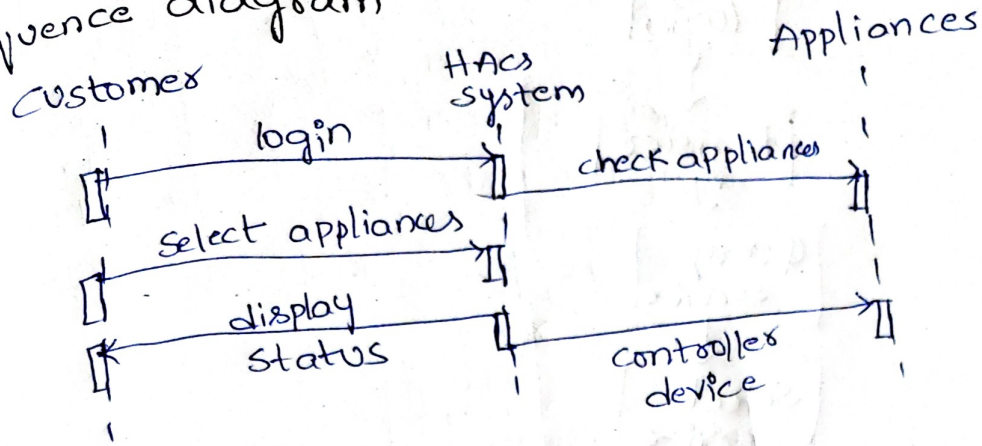 quence diagram
Customer
HACS
system
Appliances
login
check appliances
Select appliances
display
status
controller
device